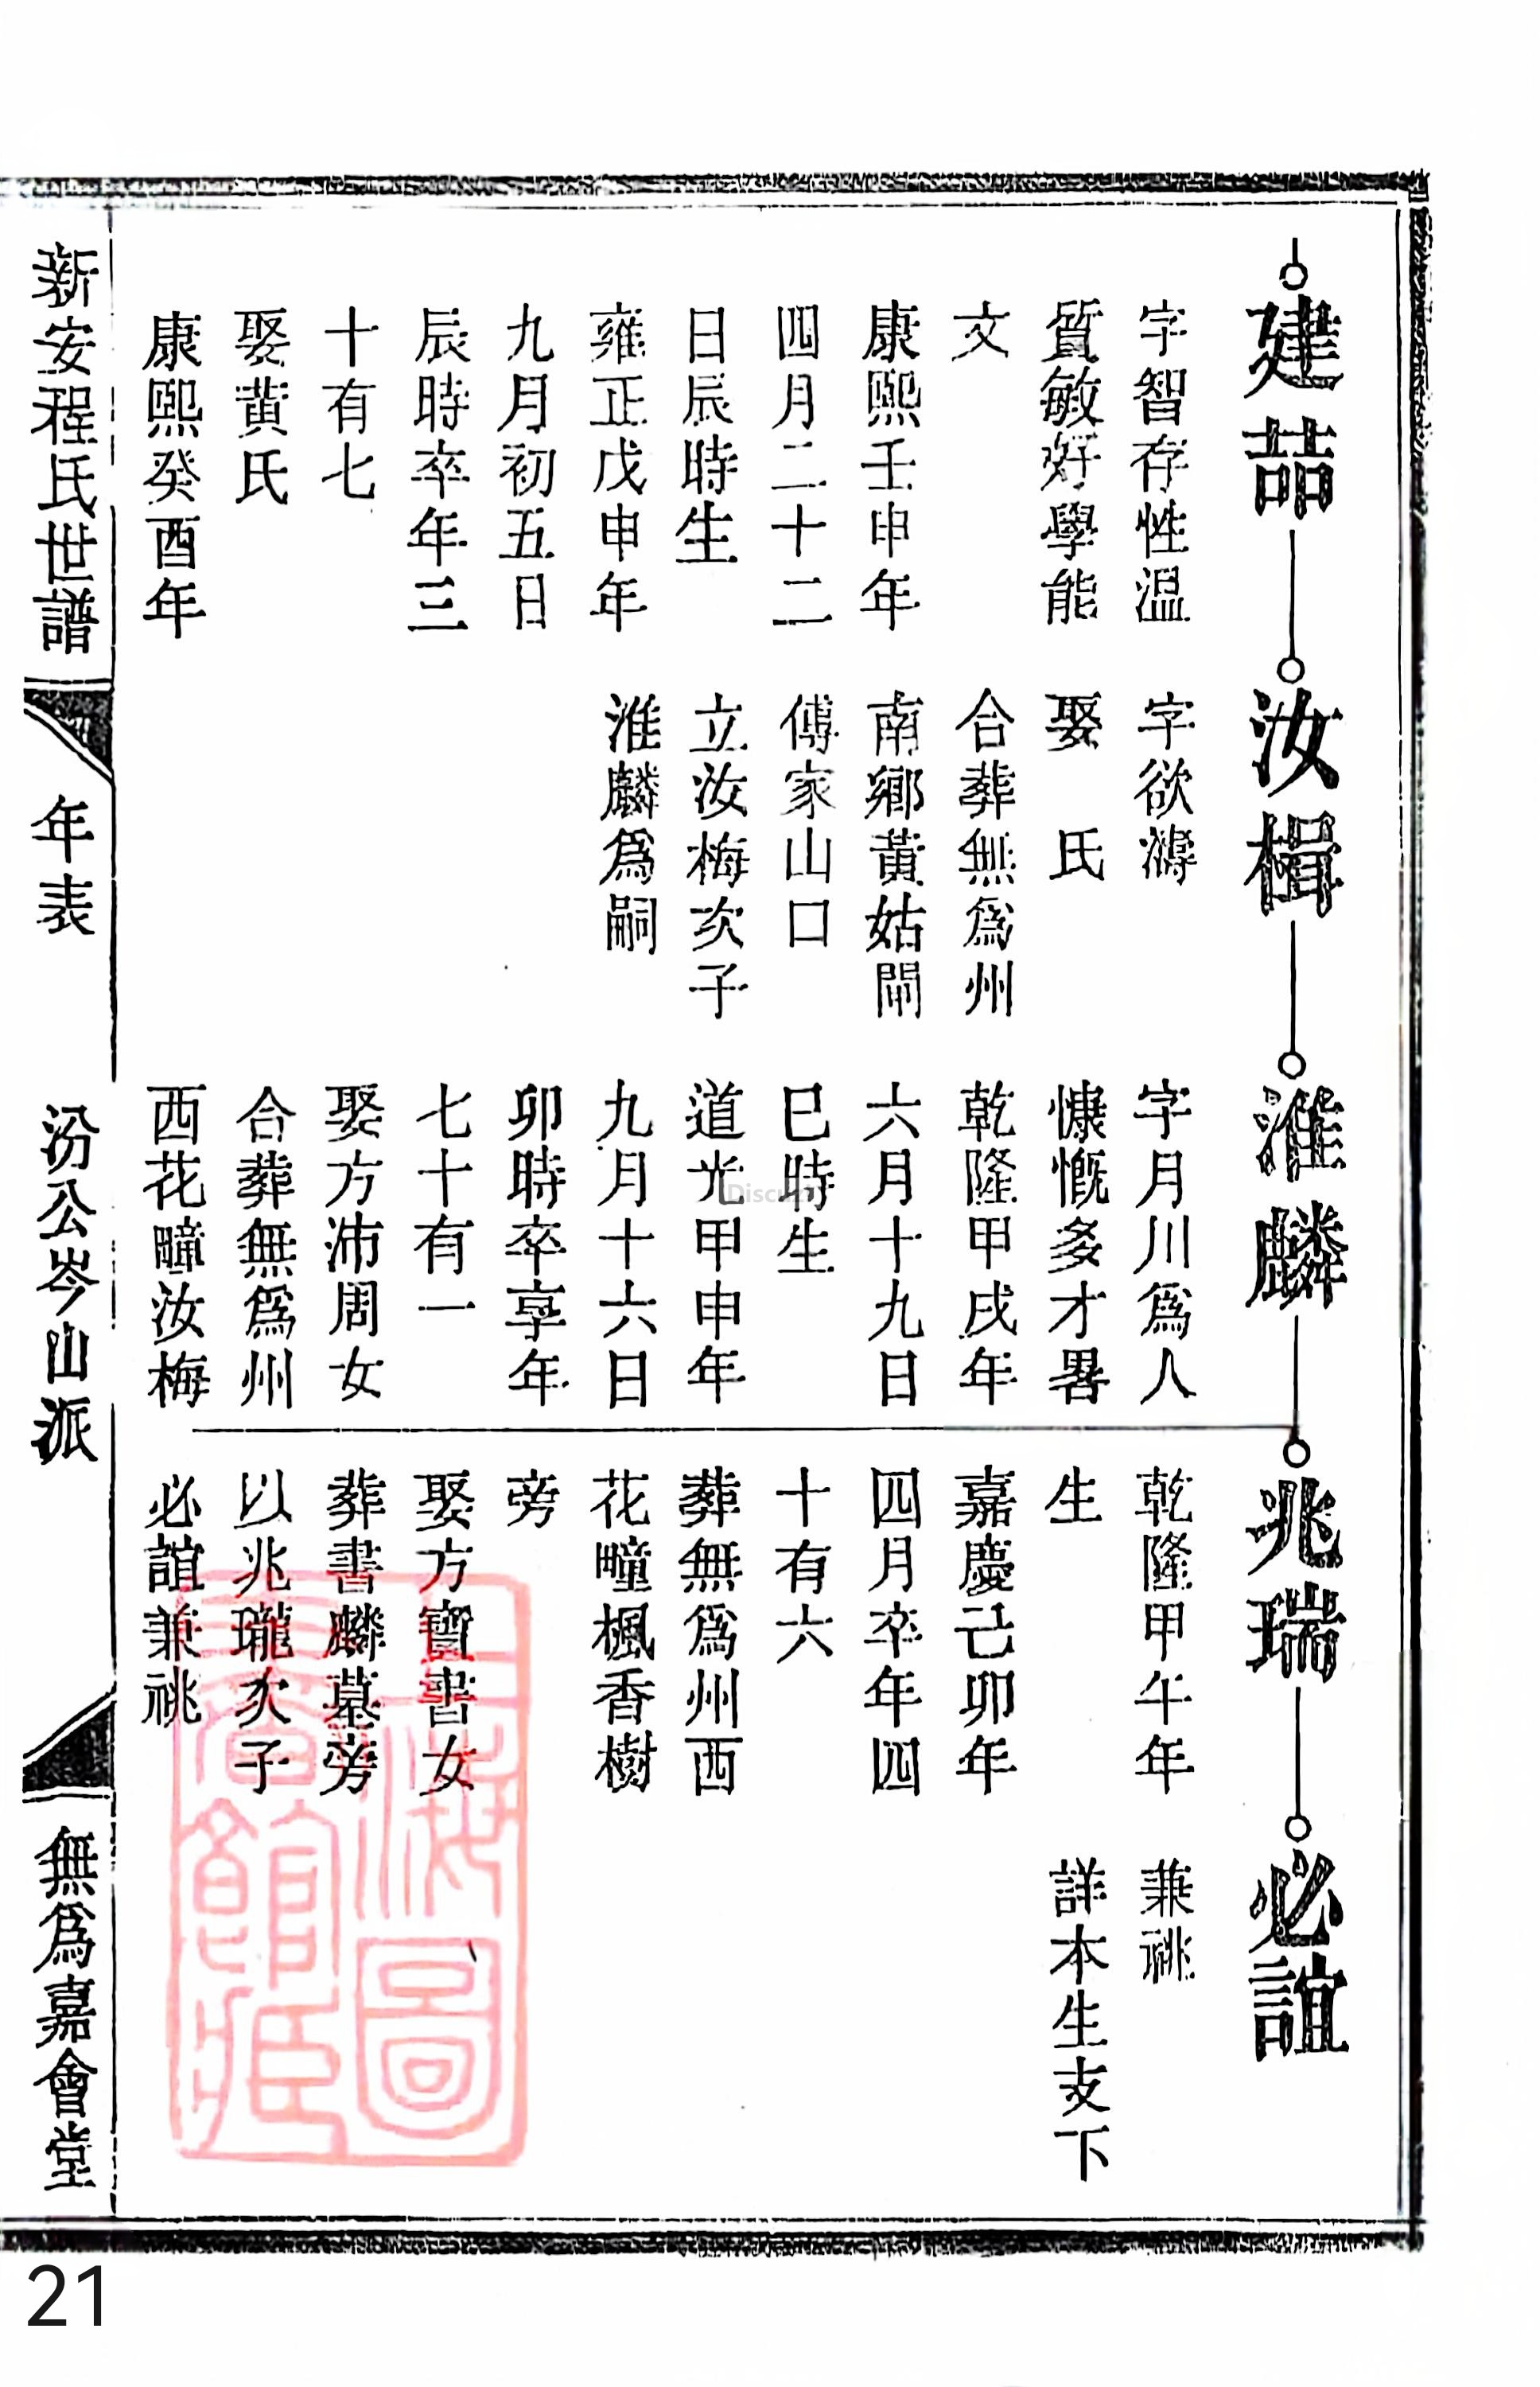 建喆
字智存性溫
質敏好學能
文
康熙壬申年
四月二十二
日辰時生
雍正戊申年
九月初五日
辰時卒年三
十有七
娶黃氏
康熙癸酉年
汝楫
字欲濤
娶　氏
合葬無爲州
南鄉黃姑閘
傅家山口
立汝梅次子
淮麟爲嗣
淮麟
字月川爲人
慷慨多才畧
乾隆甲戌年
六月十九日
巳時生
道光甲申年
九月十六日
卯時卒享年
七十有一
娶方沛周女
合葬無爲州
西花疃汝梅
兆瑞
乾隆甲午年
生
嘉慶己卯年
四月卒年四
十有六
葬無爲州西
花疃楓香樹
旁
娶方寶書女
葬書麟墓旁
以兆瓏次子
必誼兼祧
必誼
兼祧
詳本生支下
新安程氏世譜
年表
汾公岑山派
無爲嘉會堂
上海圖書館藏
Discuz!
21